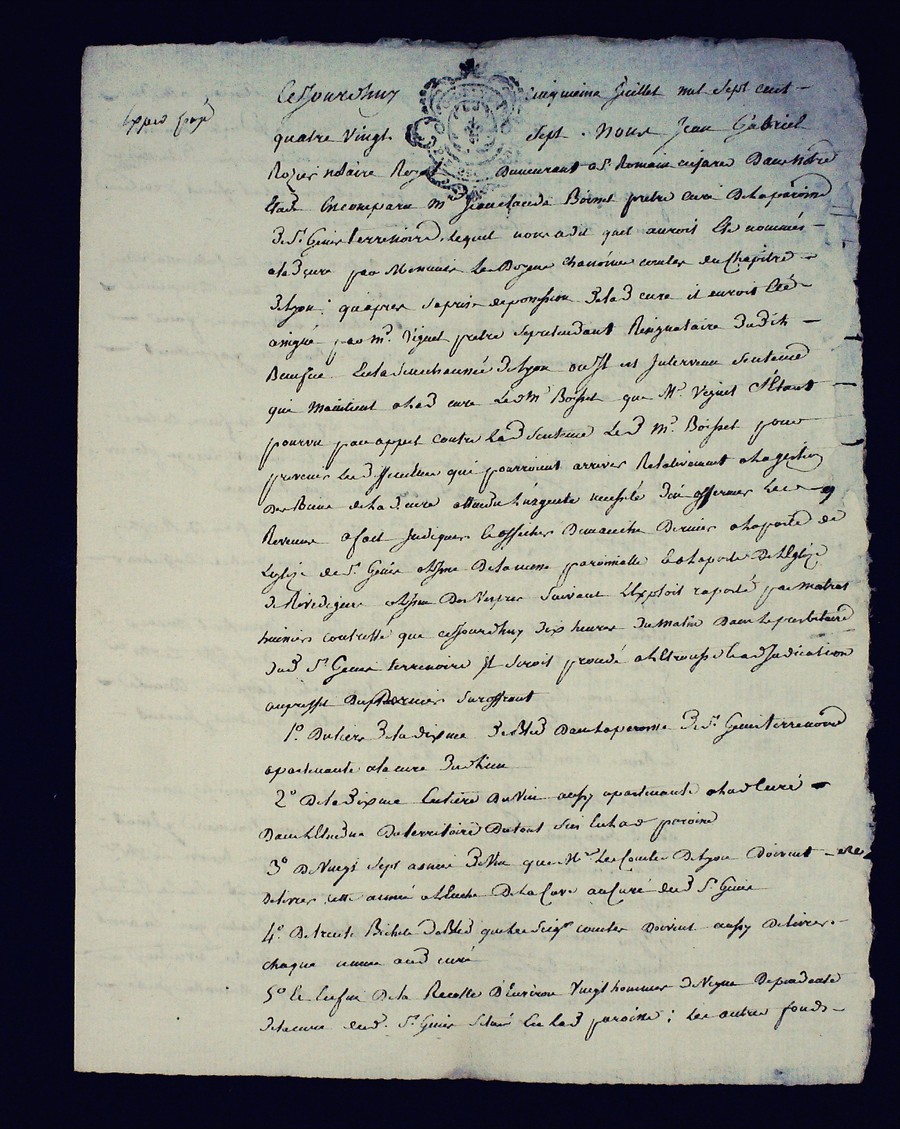 Cejourdhuy cinquieme Juillet mil sept cent
quatre vingt sept. Nous Jean Gabriel
Rozier notaire Royal Demeurant a St. Romain en jarez Dans nôtre
Etude Est comparu Mr Jean Claude Boisset pretre curé De la paroisse
De St. Genis terrenoire, lequel nous a dit quil auroit Eté nommés
a lad cure par Messieurs Les Doyen chanoine comtes du Chapitre
De Lyon; qu'apres sa prise de possession De lad cure il auroit Eté
assigné par Mr. Viguet pretre se pretendant Resignataire Dudit
Benefice En la Senechaussée De Lyon ou Il est Intervenu Sentence
qui Maintient a lad cure Led Mr Boisset que Mr. Viguet S'Etant
pourvu par appel contre lad Sentence Led Mr. Boisset pour
prevenir Les difficultés qui pourroient arriver Relativement a la gestion
Des Biens De lad cure attendu L'urgente necessité D'en affermer Les
Revenus a fait Indiquer les affiches Dimanche Dernier a la porte de
L'eglize de St. Genis a l'issue De la messe paroissialle Et a la porte De L'Eglize
De Rivedegier a l'issue Des Vespres Suivant L'Exploit raporté par
huissier controllé que cejourdhuy dix heures Du Matin Dans Le presbitaire
Dud St. Genis terrenoire Il Seroit procedé a L'Etrousse Et adjudication
au Dernier Suroffrant
1º. Du tiers De la dixme De Bled Dans la paroisse De St. Genis terrenoire
apartenante a la cure Dud lieu
2º De la Dixme Entiere Du Vin aussy apartenante a lad Cure
Dans L'Etendue Du territoire Du tout Sis En lad paroisse
3º De Vingt Sept anées De Vin que Mrs Les Comtes De Lyon Doivent
Delivrer cette année a L'anche De la Cuve au Curé dud St. Genis
4º. De trente Bichets De Bled que Les Seigrs comtes Doivent aussy Delivrer
chaque année aud curé
5º Et Enfin De la Recolte D'Environ Vingt hommes De Vigne Dependante
De la cure dud. St. Genis Située En lad paroisse; Les autres fonds